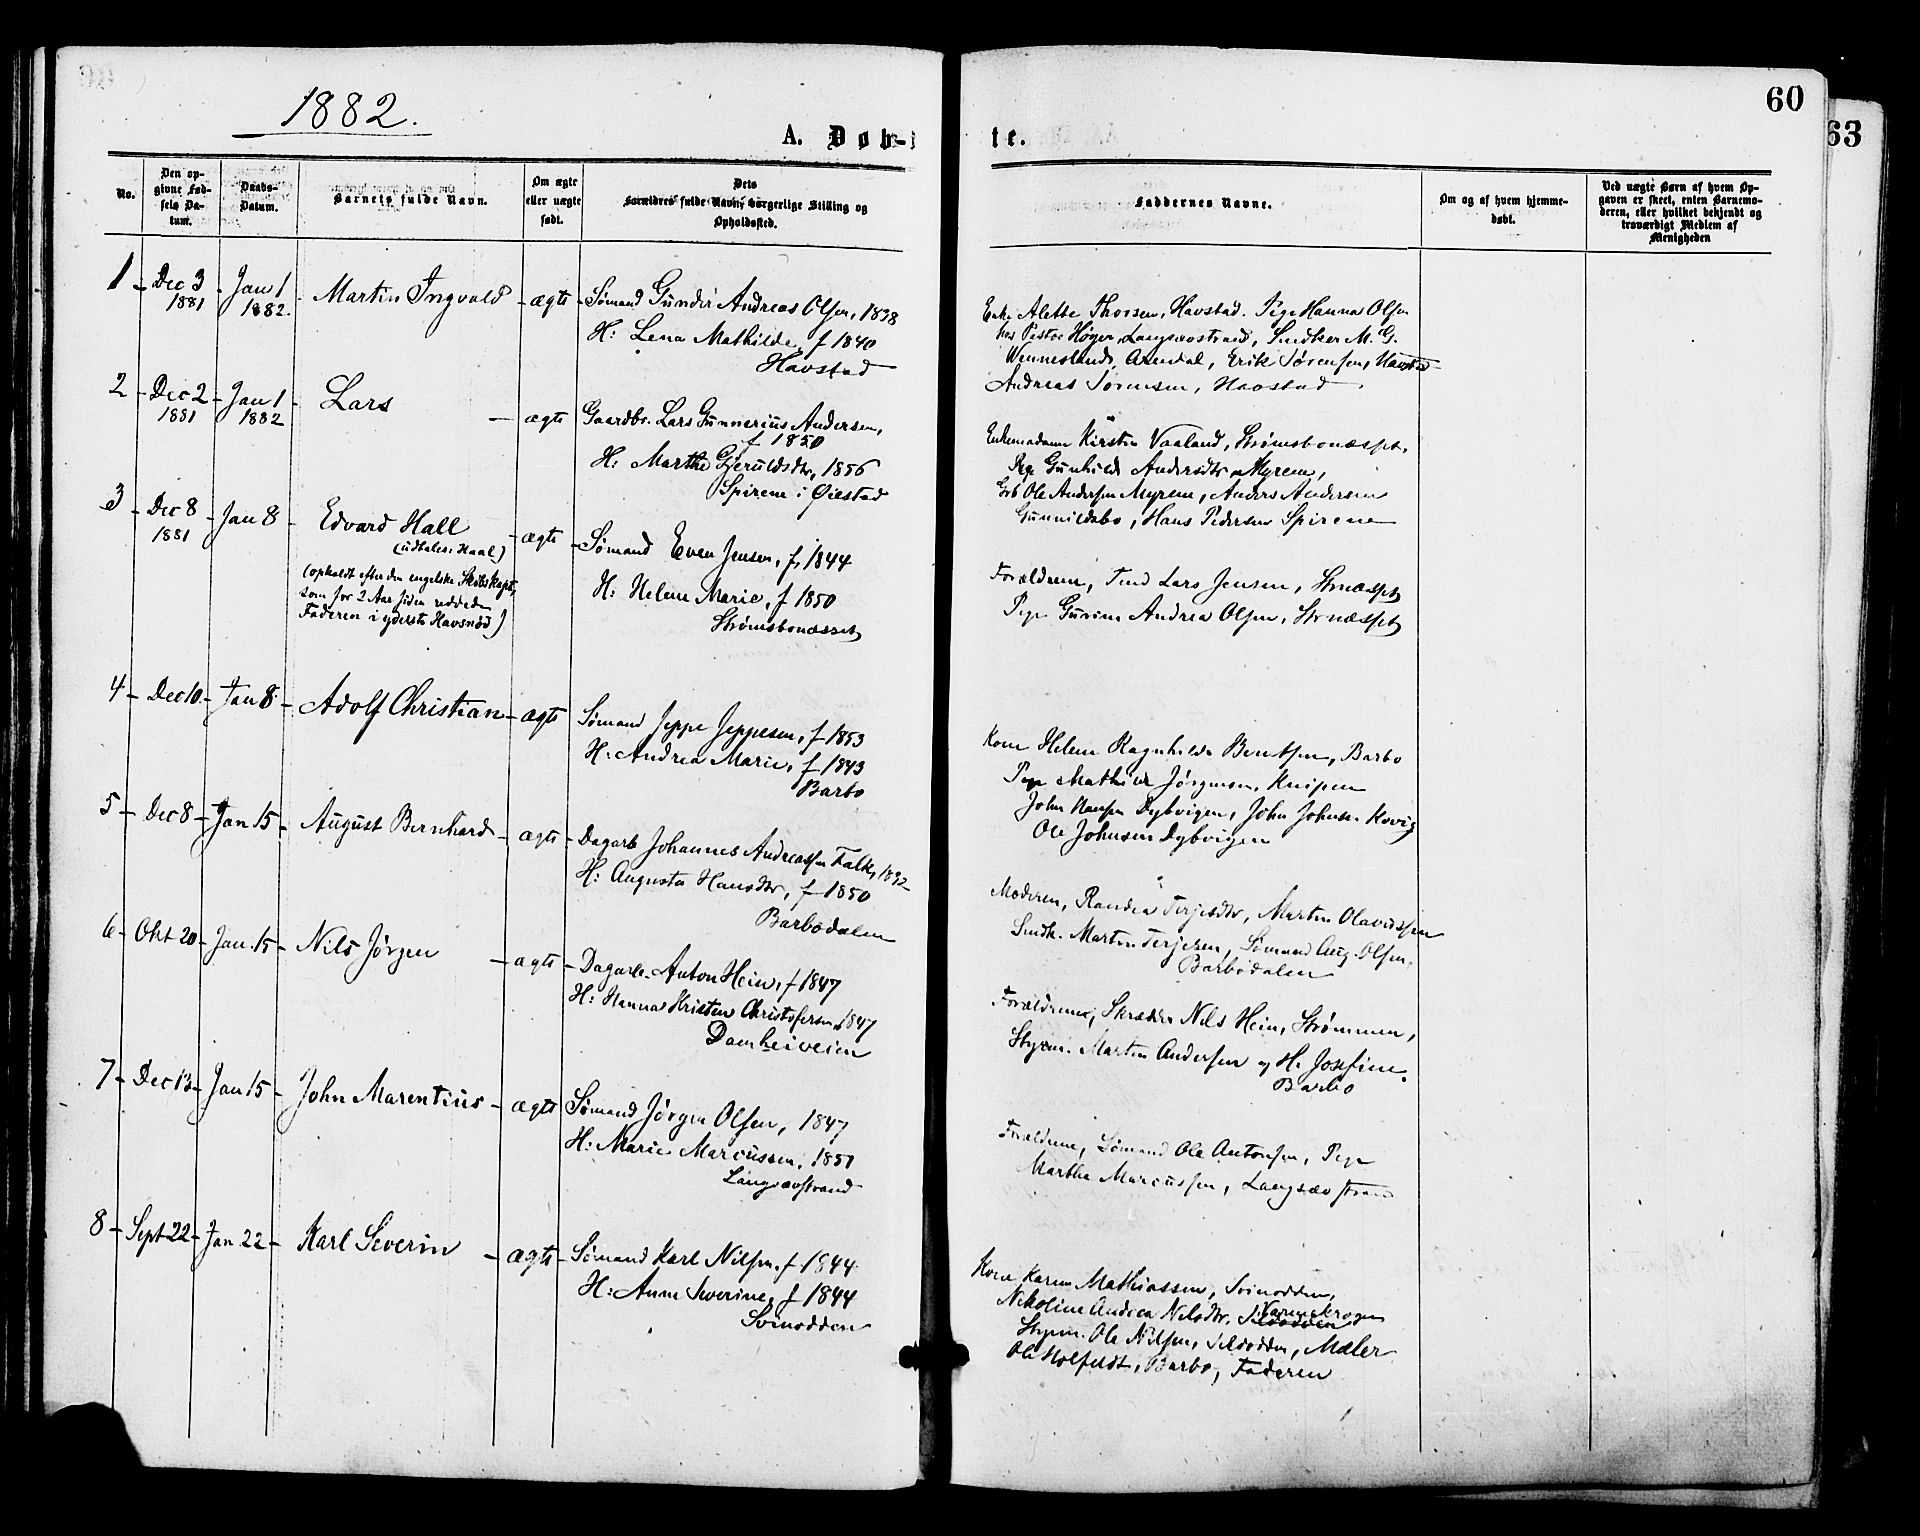 60
63
1882.
A. Døb-
te.
No.
Den op-
givne Fød-
sels Da-
tum.
Daabs-
Datum.
Barnets fulde Navn.
Om ægte
eller uægte
født.
Dets
Forældres fulde Navn, borgerlige Stilling og
Opholdssted.
Faddernes Navne.
Om og af hvem hjemme-
døbt.
Ved uægte Børn af hvem Op-
gaven er skeet, enten Barnemo-
deren, eller hvilket bekjendt og
troværdigt Medlem af
Menigheden
1 - Dec 3 - Jan 1 - Martin Ingvald - ægte - Sømand Gunder Andreas Olsen, 1838
1881 1882.
H: Lena Mathilde, f 1840
Havstad
Enke Alette Thorsen, Havstad. Pige Hanna Olsen
hos Pastor Høyer, Langsævstrand, Snedker M. G.
Wennesland, Arendal, Erik Sørensen, Havstad
Andreas Sørensen, Havstad
2 - Dec 2 - Jan 1 - Lars - ægte - Gaardbr. Lars Gunnerius Andersen,
1881 1882
f 1850
H: Marthe Gjeruldsdtr, 1856
Spirene i Øiestad
Enkemadam Kirsten Vaaland, Strømsbonæsset.
Pige Gunhild Andersdtr Myrene,
Grb Ole Andersen Myrene, Anders Andersen
Gunnildsbo, Hans Pedersen Spirene
3 - Dec 8 - Jan 8 - Edvard Hall - ægte - Sømand Even Jensen, f. 1844
1881
(udtales: Haal)
(opkaldt efter den engelske Skibskapt,
som for 2 Aar siden reddede
Faderen i yderste Havsnød)
H: Helene Marie, f 1850
Strømsbonæsset
Forældrene, Tmd Lars Jensen, Strnæsset
Pige Gurine Andrea Olsen, Strnæsset
4 - Dec 10 - Jan 8 - Adolf Christian - ægte - Sømand Jeppe Jeppesen, f 1853
H: Andrea Marie, f 1843
Barbo
Kone Helene Ragnhilde Bentsen, Barbo
Pige Mathilde Jørgensen, Knipen
John Hansen Dybvigen, John Johnsen Kovig
Ole Johnsen Dybvigen
5 - Dec 8 - Jan 15 - August Bernhard - ægte - Dagarb Johannes Andreassen Falk, 1832
H: Augusta Hansdtr, f 1850
Barbodalen
Moderen, Randea Terjesdtr, Martin Olavessen
Snedk. Martin Terjesen, Sømand Aug. Olsen,
Barbodalen
6 - Okt 20 - Jan. 15 - Nils Jørgen - ægte - Dagarb. Anton Hein, f 1847
H: Hanna Kristen Christofersen, 1847
Damheiveien
Forældrene, Skrædder Nils Hein, Strømmen,
Styrm. Martin Andersen og H. Josefine.
Barbo
7 - Dec 13 - Jan 15 - John Marentius - ægte - Sømand Jørgen Olsen, 1847
H: Marie Marcussen, 1851
Langsævstrand
Forældrene, Sømand Ole Antonsen, Pige
Marthe Marcussen, Langsævstrand
8 - Sept 22 - Jan 22 - Karl Severin - ægte - Sømand Karl Nilsen, f 1844
H: Anne Severine, f 1844
Svinodden
Kone Karen Mathiassen, Svinodden,
Nikoline Andrea Nilsdtr,
Styrm. Ole Nilsen, Sildodden, Maler
Ole Holfeldt, Barbo, Faderen